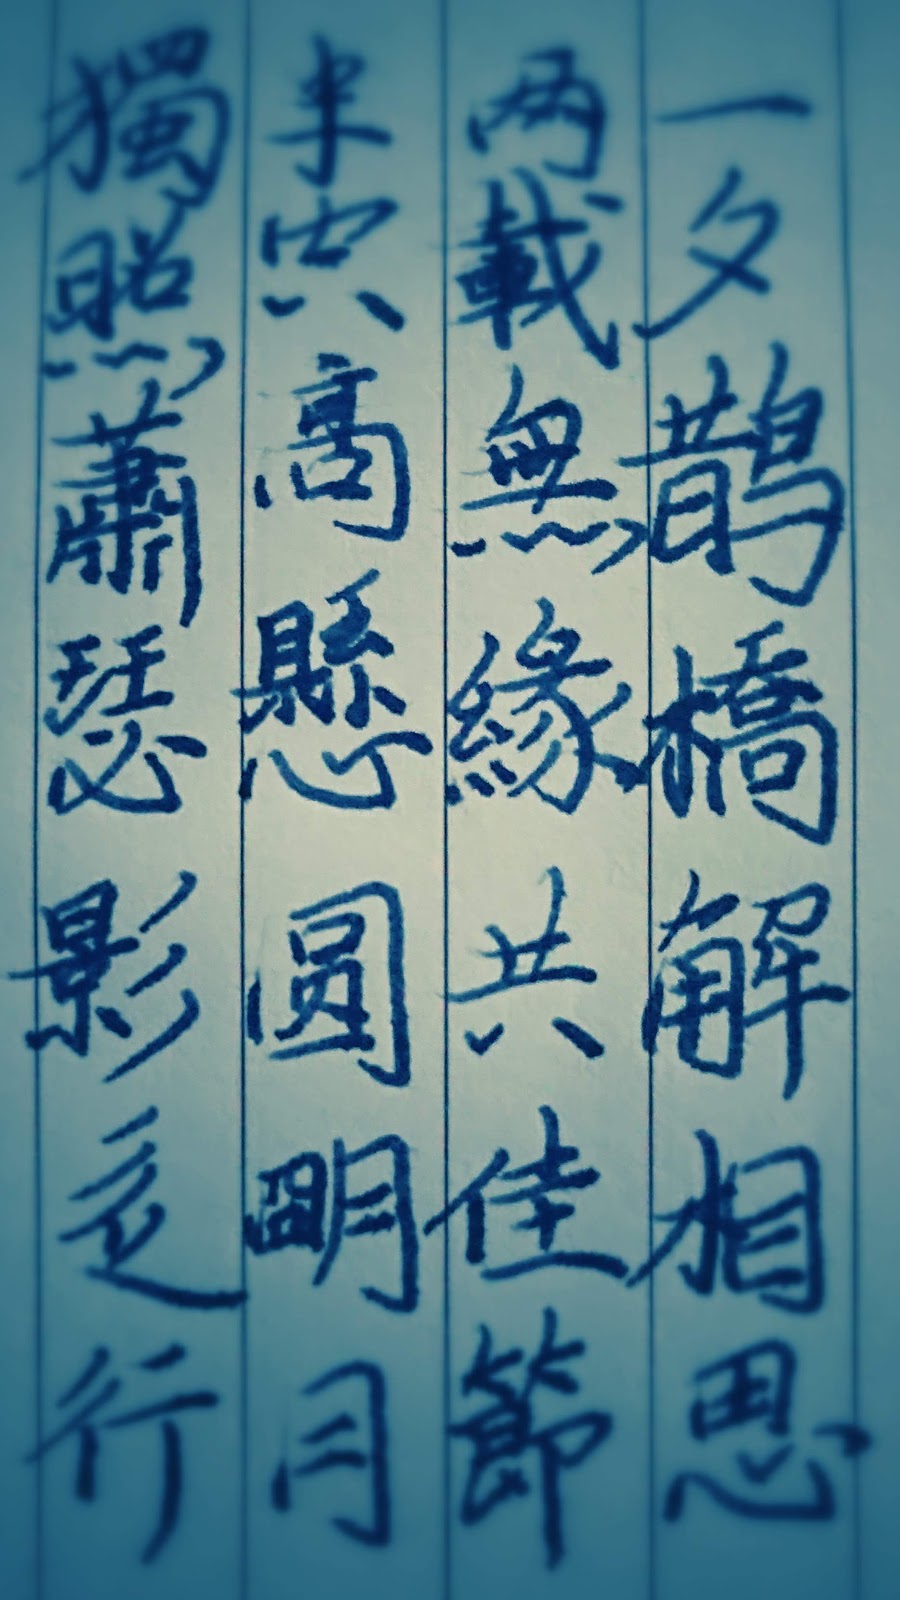 一夕鵲橋解相思
兩載無緣共佳節
半高懸圓朙月
獨照蕭瑟影辵行